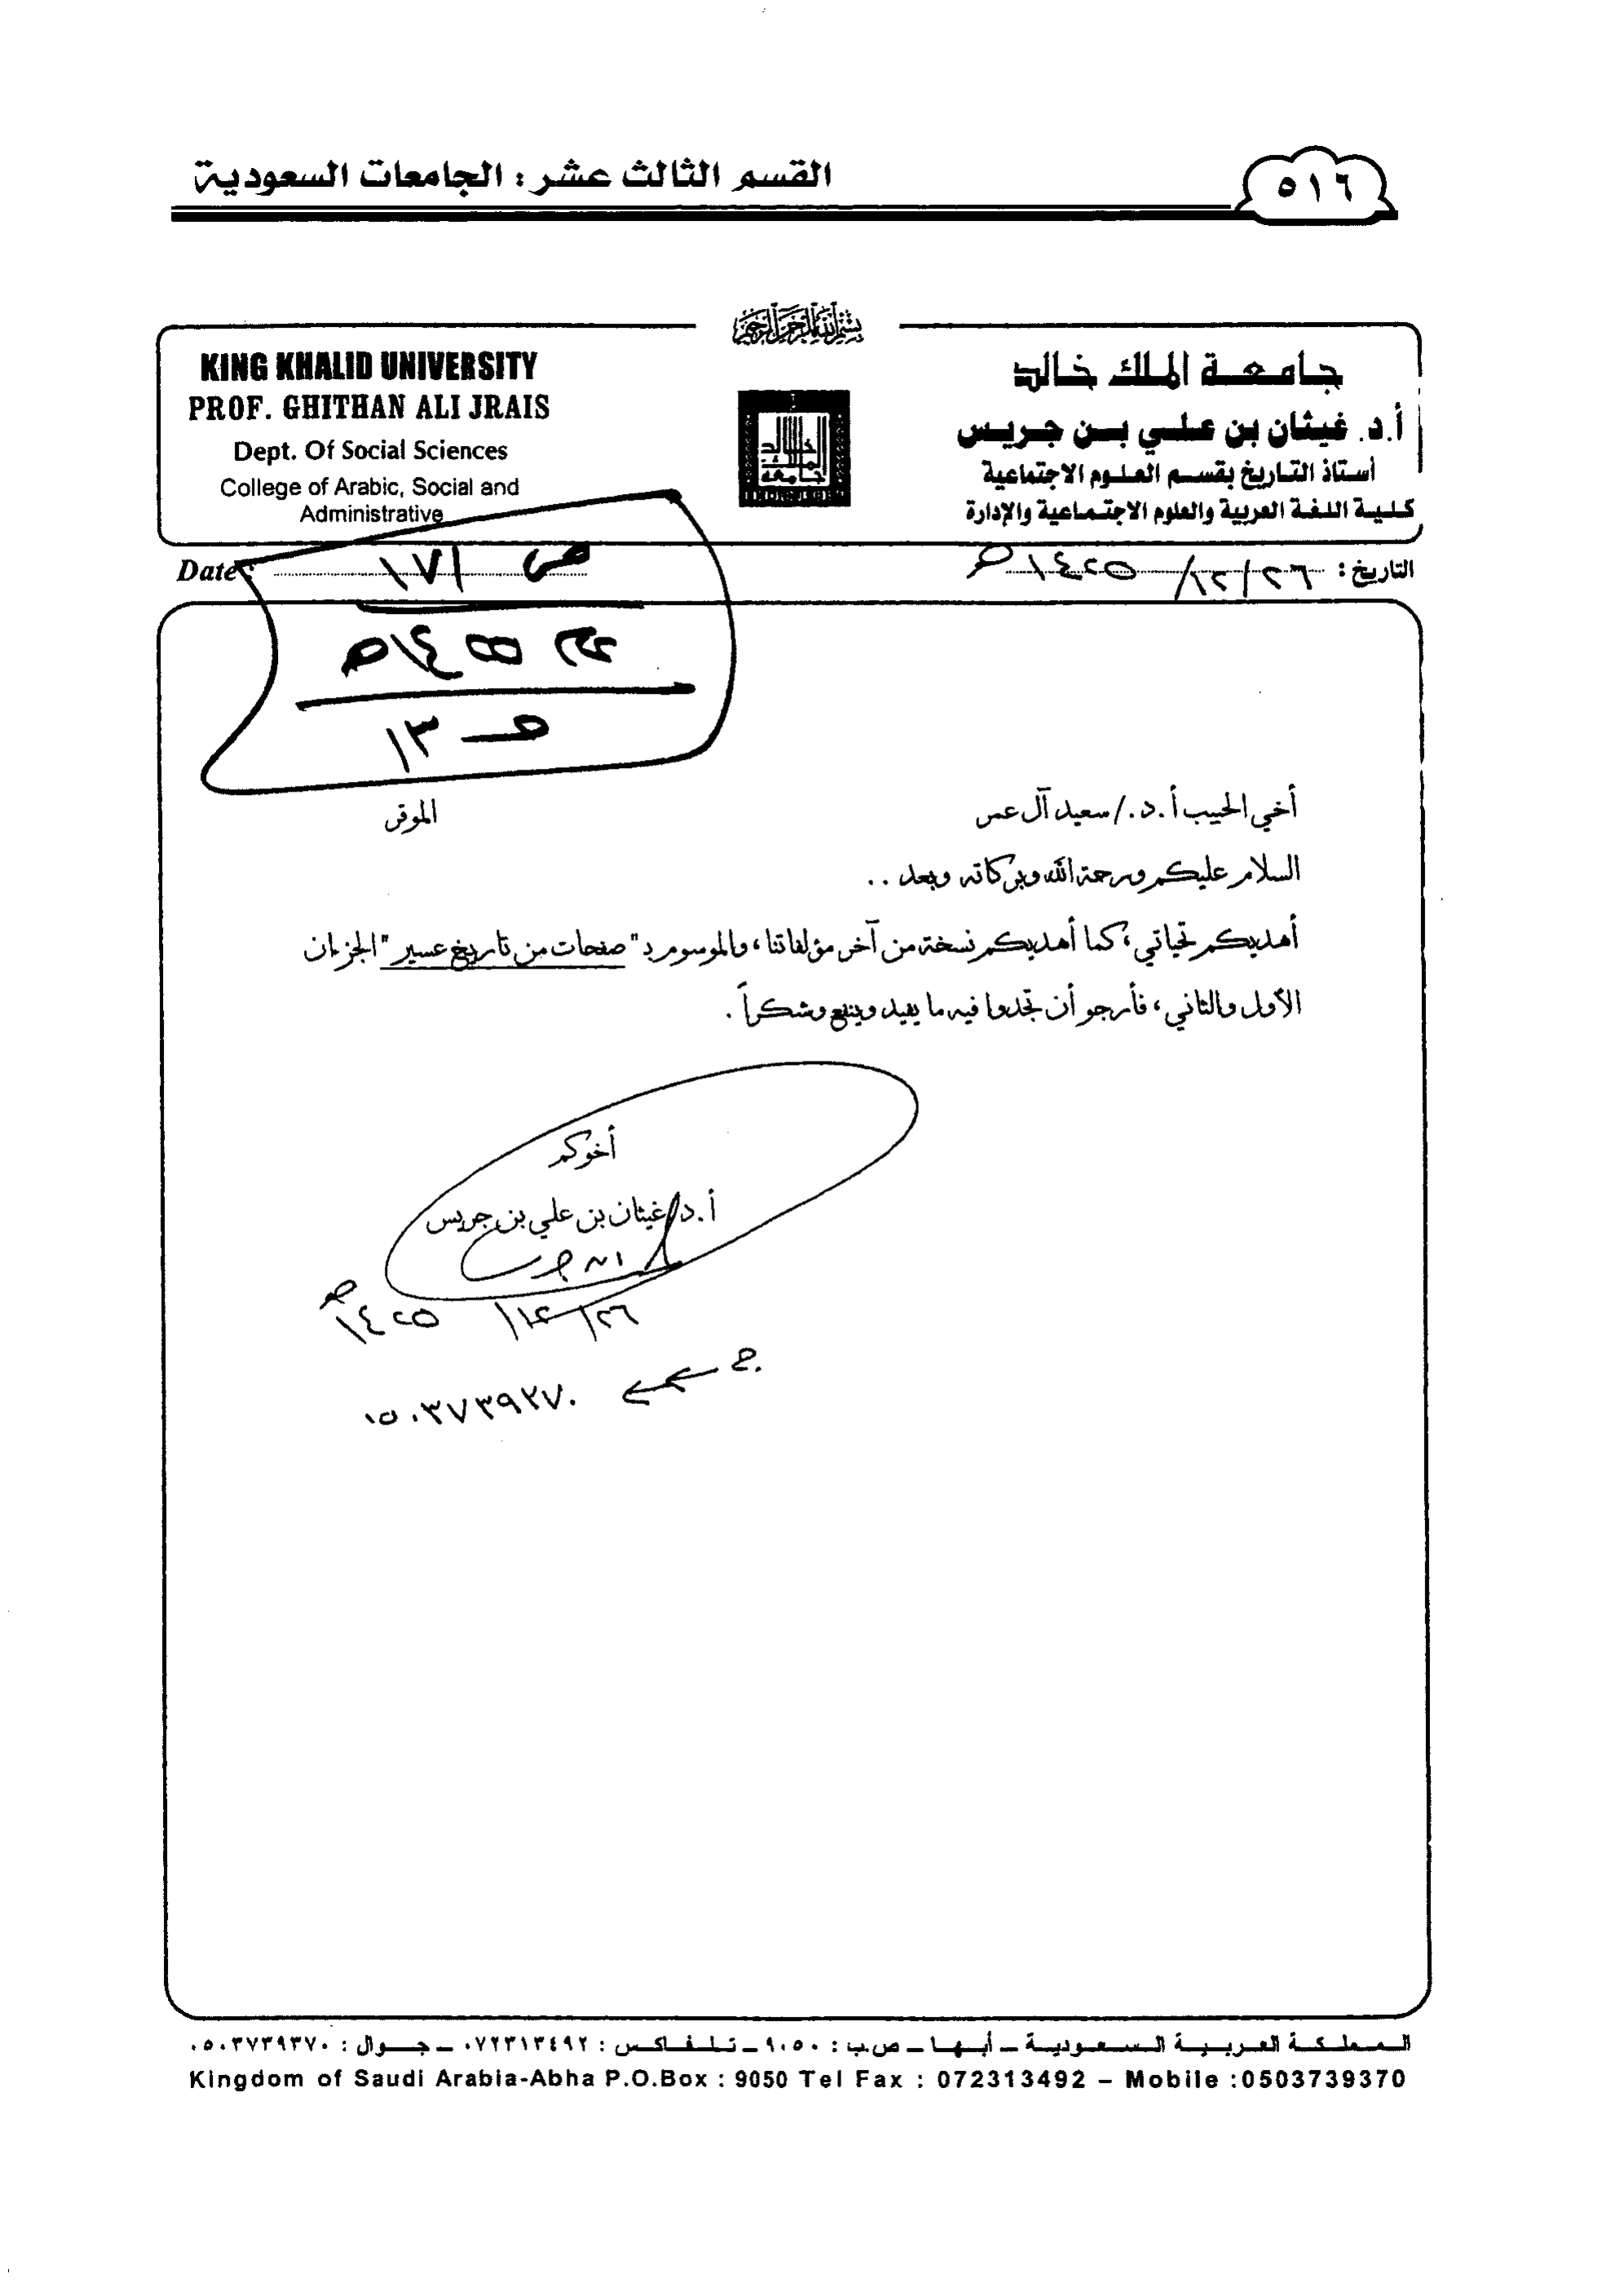 القسم الثالث عشر : الجامعات السعودية
٥١٦
بسم الله الرحمن الرحيم
جامعة الملك خالد
أ.د. غيثان بن علي بن جريس
أستاذ التاريخ بقسم العلوم الاجتماعية
كلية اللغة العربية والعلوم الاجتماعية والإدارة
جامعة الملك خالد
KING KHALID UNIVERSITY
PROF. GHITHAN ALI JRAIS
Dept. Of Social Sciences
College of Arabic, Social and
Administrative
التاريخ : ٢٦/١٢/١٤٢٥هـ
Date :
ص ١٧١
١٣
أخي الحبيب أ.د./سعيد آل عمر الموقر
السلام عليكم ورحمة الله وبركاته وبعد ..
أهديكم تحياتي، كما أهديكم نسخة من آخر مؤلفاتنا، والموسوم بـ "صفحات من تاريخ عسير" الجزءان
الأول والثاني، فأرجو أن تجدوا فيه ما يفيد وينفع وشكراً .
أخوكم
أ.د/غيثان بن علي بن جريس
٢٦/١٢/١٤٢٥هـ
ج
٠٥٠٣٧٣٩٣٧٠
المملكة العربية السعودية – أبها – ص.ب : ٩٠٥٠ – تلفاكس : ٠٧٢٣١٣٤٩٢ – جوال : ٠٥٠٣٧٣٩٣٧٠
Kingdom of Saudi Arabia-Abha P.O.Box : 9050 Tel Fax : 072313492 – Mobile :0503739370